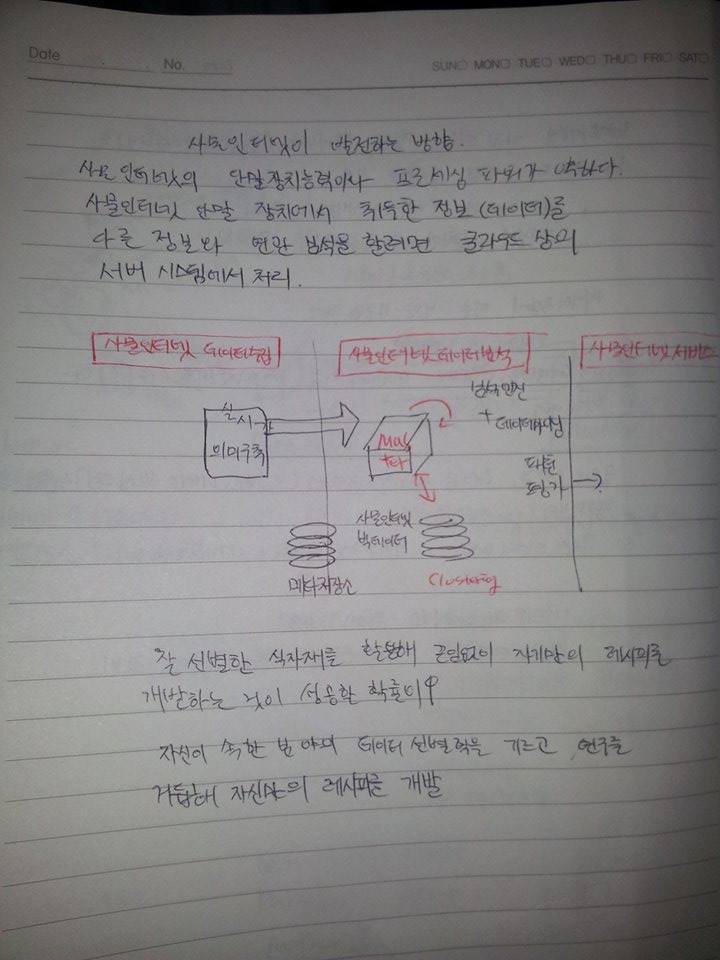 Date
No.
SUN MON TUE WED THU FRI SAT
사물인터넷이 발전하는 방향.
사물인터넷의 단말장치능력이나 프로세싱 파워가 약하다.
사물인터넷 단말 장치에서 취득한 정보(데이터)를
다른 정보와 연관 분석을 할려면 클라우드 상의
서버 시스템에서 처리.
사물인터넷 데이터수집
사물인터넷 데이터분석
사물인터넷 서비스
실시
의미구축
분석엔진
+ 데이터마이닝
패턴
평가
메타저장소
사물인터넷
빅데이터
Clostering
잘 선별한 식자재를 활용해 끈임없이 자기만의 레시피를
개발하는 것이 성공할 확률이
자신이 속한 분야의 데이터 선별력을 기르고 연구를
거듭해 자신만의 레시피를 개발